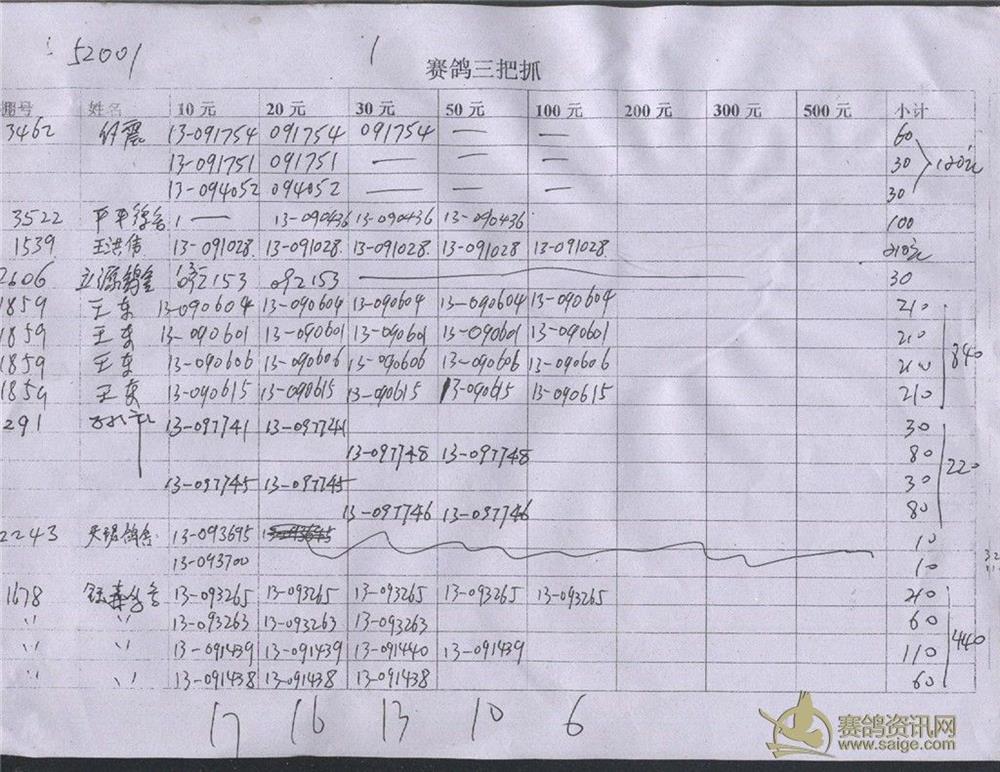 52001 1
赛鸽三把抓
棚号 姓名 10 元 20 元 30 元 50 元 100 元 200 元 300 元 500 元 小计
3462 舒震 13-091754 091754 091754 — — 60
13-091751 091751 — — — 30 120元
13-094052 094052 — — — 30
3522 平平鸽舍 1 — 13-090436 13-090436 13-090436 100
1539 王洪伟 13-091028 13-091028 13-091028 13-091028 13-091028 210元
2606 092153 092153 30
1859 王东 13-090604 13-090604 13-090604 13-090604 13-090604 210
1859 王东 13-090601 13-090601 13-090601 13-090601 13-090601 210
1859 王东 13-090606 13-090606 13-090606 13-090606 13-090606 210 840
1859 王东 13-090615 13-090615 13-090615 13-090615 13-090615 210
291 13-097741 13-097741 30
13-097748 13-097748 80
13-097745 13-097745 30 220
13-097746 13-097746 80
2243 鸽舍 13-093695 10
13-093700 10
1678 13-093265 13-093265 13-093265 13-093265 13-093265 210
〃 〃 13-093263 13-093263 13-093263 60
〃 〃 13-091439 13-091439 13-091440 13-091439 110 440
〃 〃 13-091438 13-091438 13-091438 60
17 16 13 10 6
赛鸽资讯网
www.saige.com